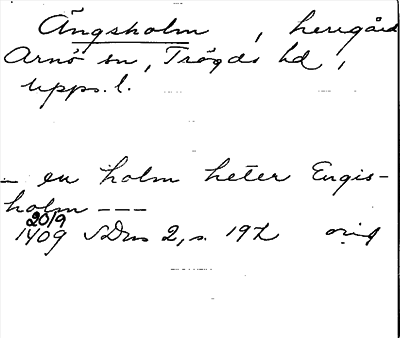 Ängsholm, herrgård
Arnö sn, Trögds hd,
Upps. l.
– en holm heter Engis-
holm ---
20/9
1409 SDns 2, s. 197 orig